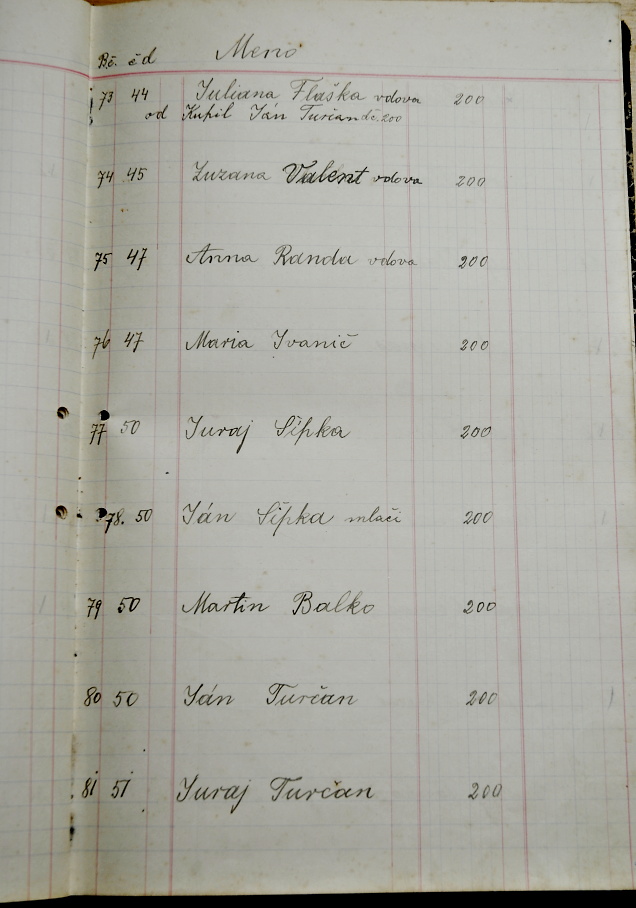 Bč. čd Meno
73 44 Juliana Flaška vdova 200
od Kupil Ján Turčan dč. 200
74 45 Zuzana Valent vdova 200
75 47 Anna Randa vdova 200
76 47 Maria Ivanič 200
77 50 Juraj Šípka 200
78. 50 Ján Šípka mlači 200
79 50 Martin Balko 200
80 50 Ján Turčan 200
81 51 Juraj Turčan 200